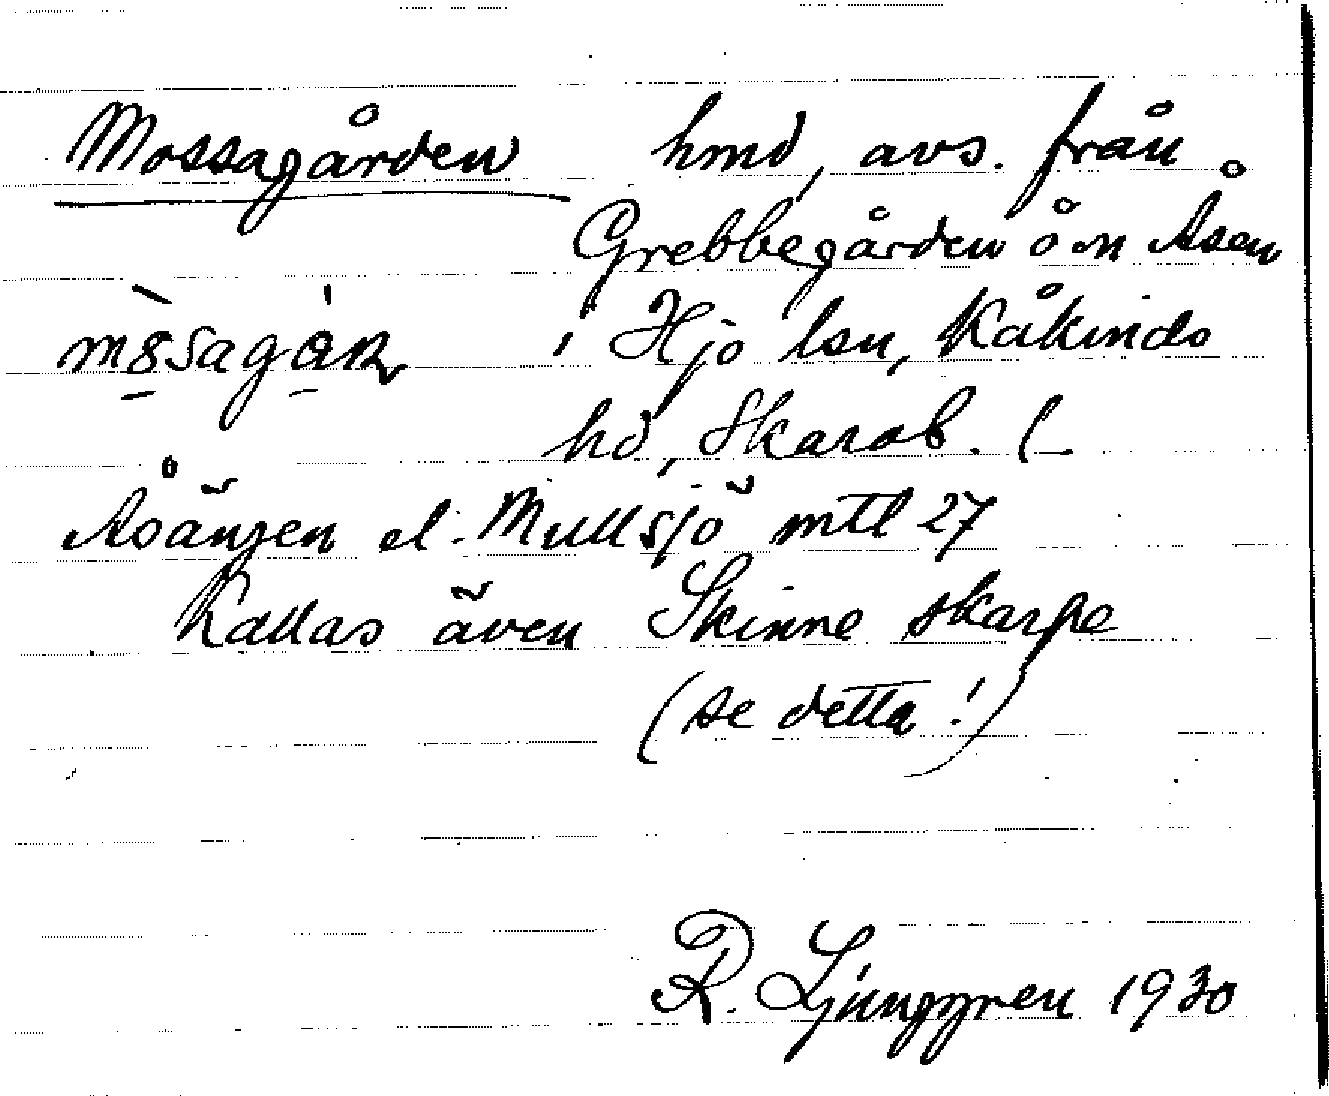 Mossagården hmd, avs. från
Grebbegården o̊m Åsen
i Hjo lsn, Kåkinds
hd, Skarab. (
Åsängen el. Mullsjö mtl 27
Kallas även Skinne skarpe
(se detta!)
R. Ljunggren 1930